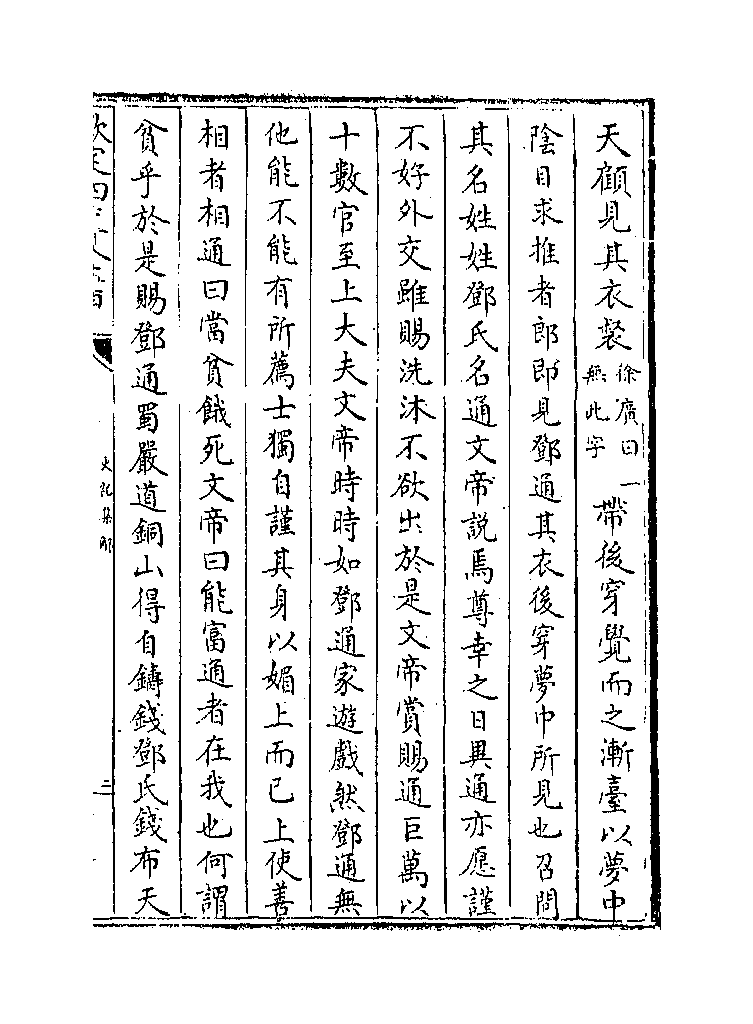 天顧見其衣裻徐廣曰一無此字帶後穿覺而之漸臺以夢中
陰目求推者郎即見鄧通其衣後穿夢中所見也召問
其名姓姓鄧氏名通文帝説焉尊幸之日異通亦愿謹
不好外交雖賜洗沐不欲出於是文帝賞賜通巨萬以
十數官至上大夫文帝時時如鄧通家遊戲然鄧通無
他能不能有所薦士獨自謹其身以媚上而已上使善
相者相通曰當貧餓死文帝曰能富通者在我也何謂
貧乎於是賜鄧通蜀嚴道銅山得自鑄錢鄧氏錢布天
史記集解
三